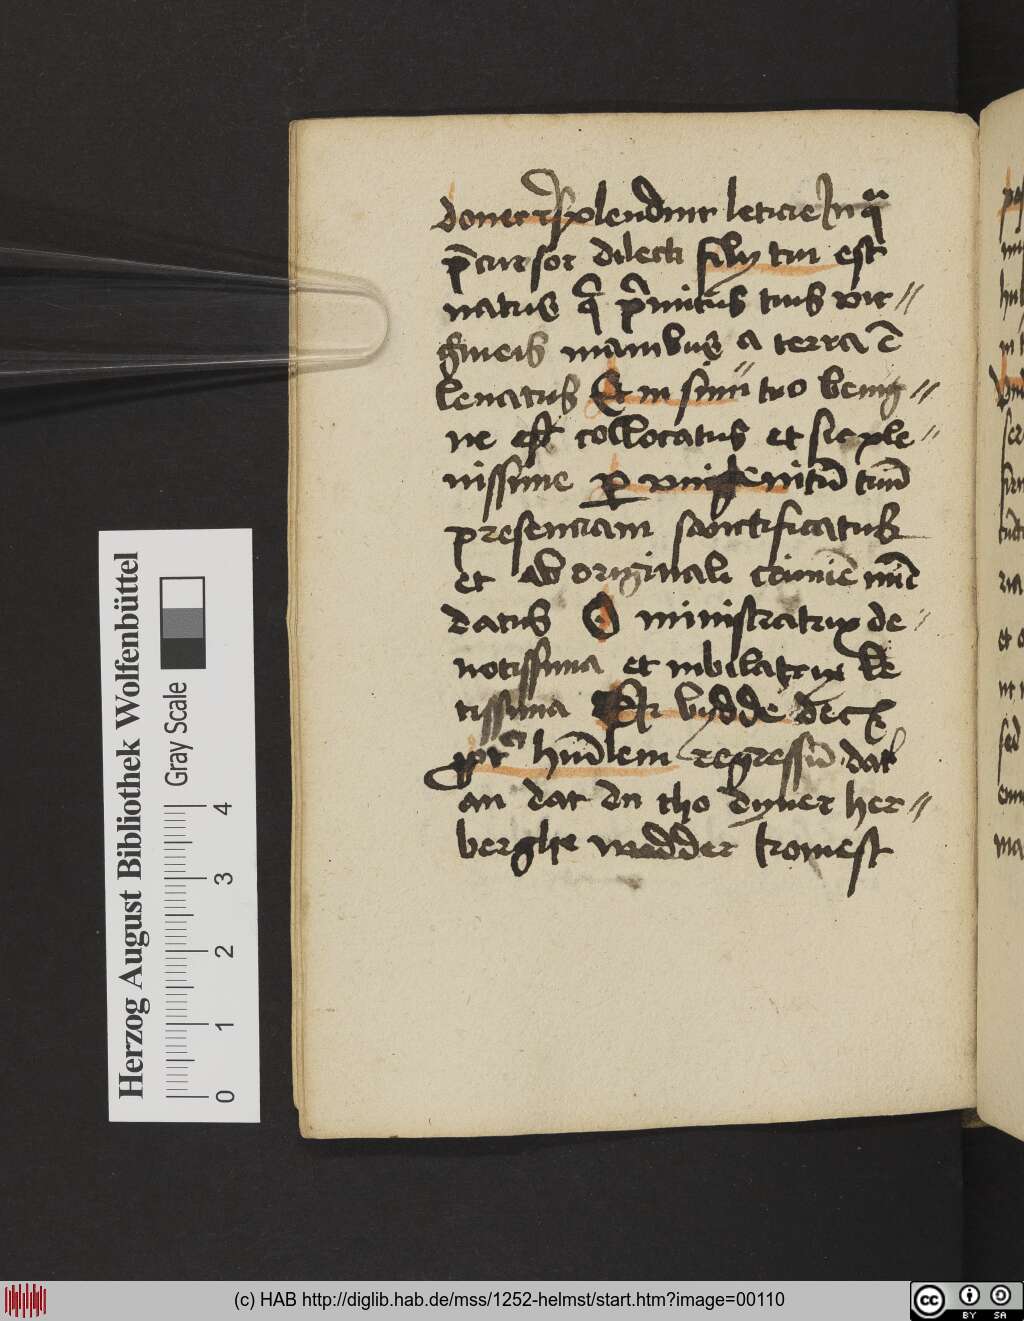 donec resplenduit leticie In qua
p̄cursor dilecti filij tui est
natus q̄ p̄mitus tuis vir〃
gineis manibus a terra ē
leuatus Et in sinu tuo benig〃
ne est collocatus et sic ple〃
nissime per vnigenitū tuū
presenciam sanctificatus
et ab originali crimīe mūᵈ
datus O ministratrix de〃
uotissima et iubilatrix le
tissima Ik bydde
humilem regressū dat
an dat du tho dyner her〃
berghe wedder komest
Herzog August Bibliothek Wolfenbüttel
Gray Scale
0 1 2 3 4
(c) HAB http://diglib.hab.de/mss/1252-helmst/start.htm?image=00110
cc BY SA